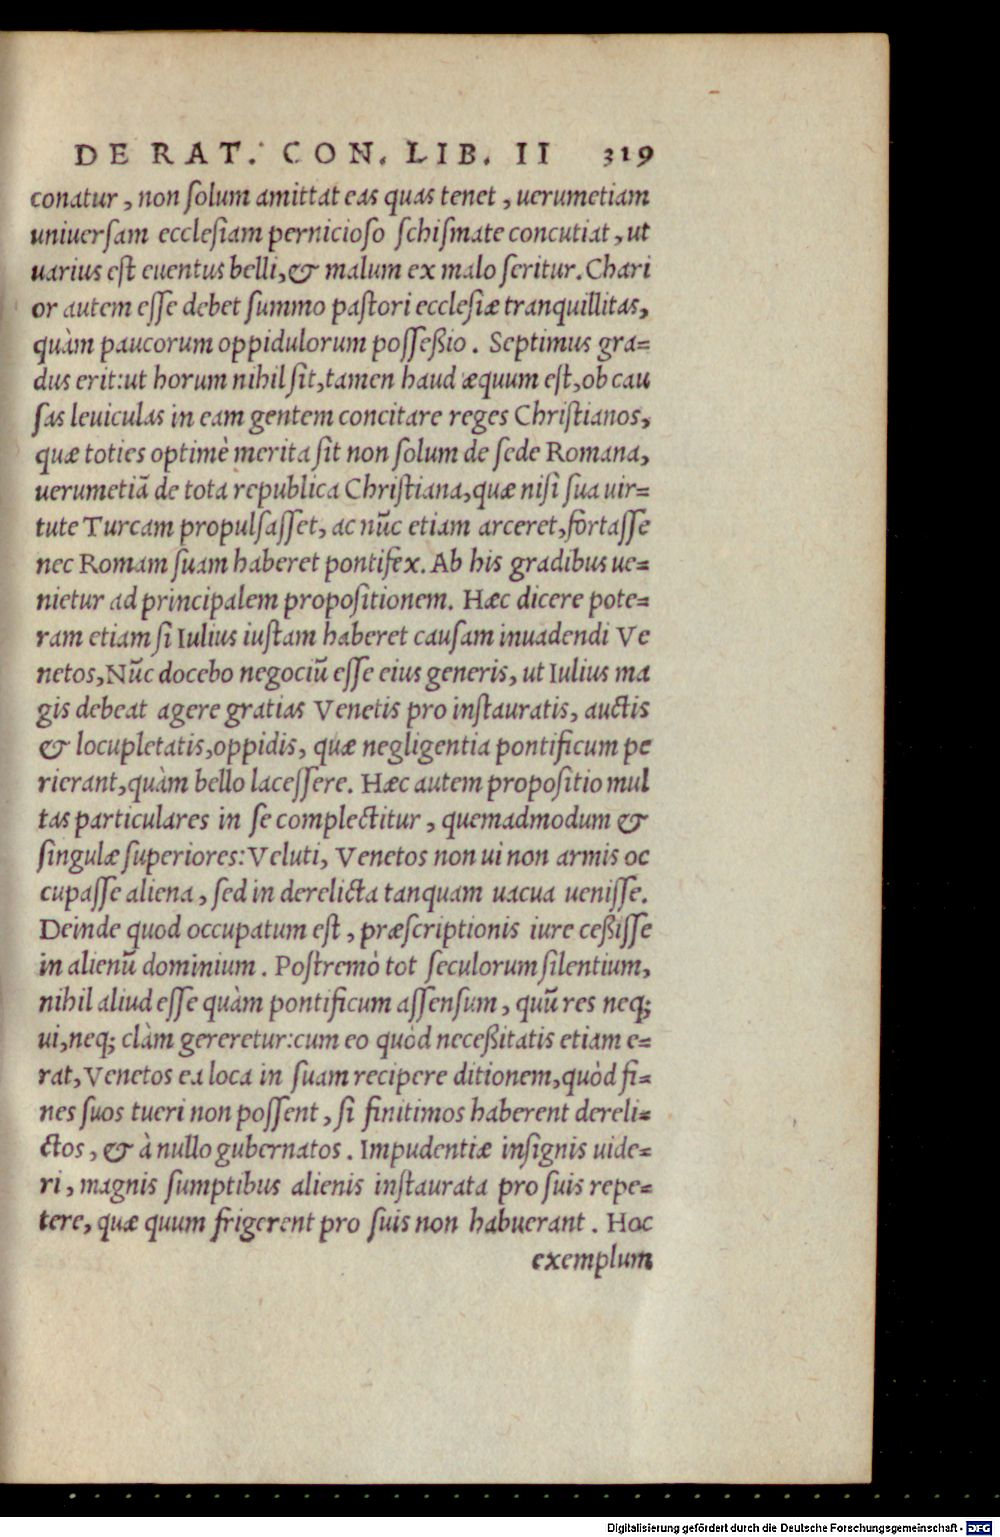 DE RAT. CON. LIB. II 319
conatur, non ſolum amittat eas quas tenet, uerumetiam
uniuerſam eccleſiam pernicioſo ſchiſmate concutiat, ut
uarius eſt euentus belli, & malum ex malo ſeritur. Chari
or autem eſſe debet ſummo paſtori eccleſiæ tranquillitas,
quàm paucorum oppidulorum poſſeßio. Septimus gra=
dus erit: ut horum nihil ſit, tamen haud æquum eſt, ob cau
ſas leuiculas in eam gentem concitare reges Chriſtianos,
quæ toties optimè merita ſit non ſolum de ſede Romana,
uerumetiã de tota republica Chriſtiana, quæ niſi ſua uir=
tute Turcam propulſaſſet, ac nũc etiam arceret, fortaſſe
nec Romam ſuam haberet pontifex. Ab his gradibus ue=
nietur ad principalem propoſitionem. Hæc dicere pote=
ram etiam ſi Iulius iuſtam haberet cauſam inuadendi Ve
netos, Nũc docebo negociũ eſſe eius generis, ut Iulius ma
gis debeat agere gratias Venetis pro inſtauratis, auctis
& locupletatis, oppidis, quæ negligentia pontificum pe
rierant, quàm bello laceſſere. Hæc autem propoſitio mul
tas particulares in ſe complectitur, quemadmodum &
ſingulæ ſuperiores: Veluti, Venetos non ui non armis oc
cupaſſe aliena, ſed in derelicta tanquam uacua ueniſſe.
Deinde quod occupatum eſt, præſcriptionis iure ceßiſſe
in alienũ dominium. Poſtremò tot ſeculorum ſilentium,
nihil aliud eſſe quàm pontificum aſſenſum, quũ res neq;
ui, neq; clàm gereretur: cum eo quòd neceßitatis etiam e=
rat, Venetos ea loca in ſuam recipere ditionem, quòd fi=
nes ſuos tueri non poſſent, ſi finitimos haberent dereli=
ctos, & à nullo gubernatos. Impudentiæ inſignis uide=
ri, magnis ſumptibus alienis inſtaurata pro ſuis repe=
tere, quæ quum frigerent pro ſuis non habuerant. Hoc
exemplum
Digitalisierung gefördert durch die Deutsche Forschungsgemeinschaft - DFG